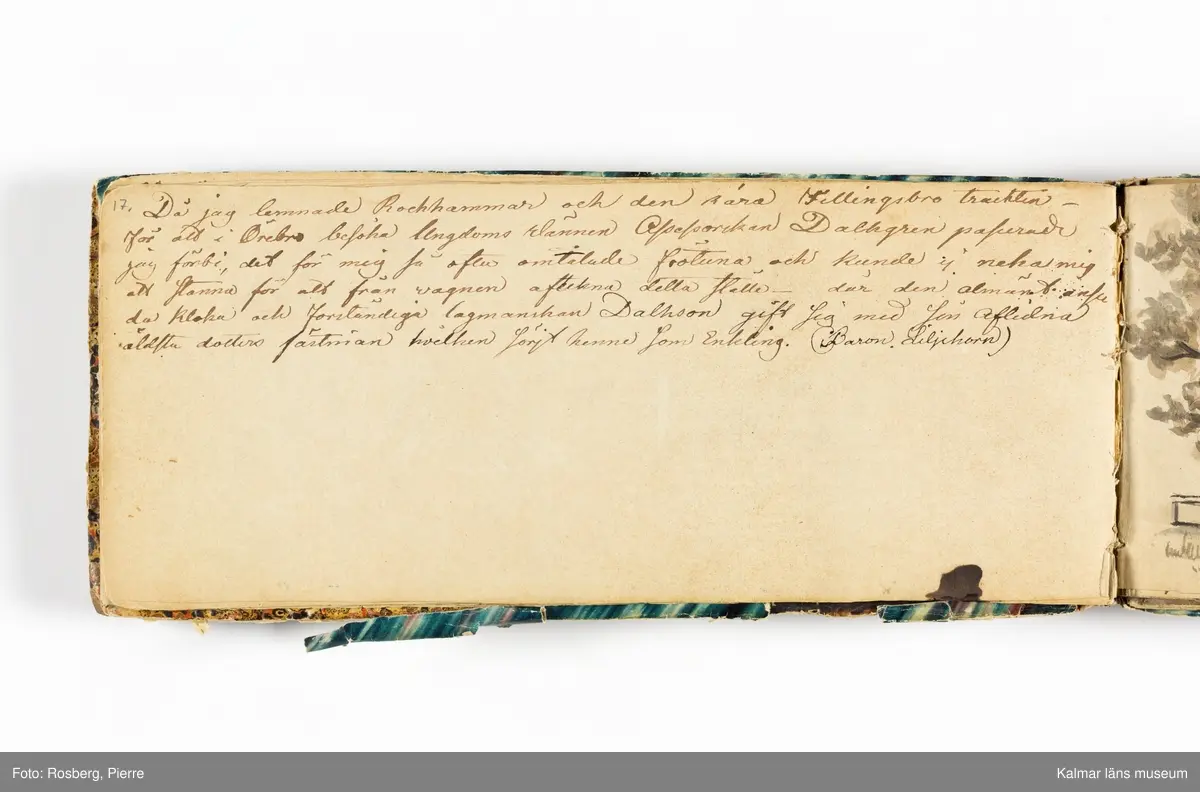 17. Då jag lemnade Rockhammar och den kära Fellingsbro trackten –
för att i Örebro besöka Ungdoms Wännen Assessorskan Dalhgren passerade
jag förbi, det för mig så ofta omtalade Frötuna och kunde ej neka mig
att stanna för att från vagnen afteckna detta ställe – där den almänt ansed
da kloka och förståndiga lagmanskan Dalhson gift sig med sin aflidna
äldsta dotters fästman hvilken sörjt henne som Enkling. (Baron. Liljehorn)
Foto: Rosberg, Pierre
Kalmar läns museum